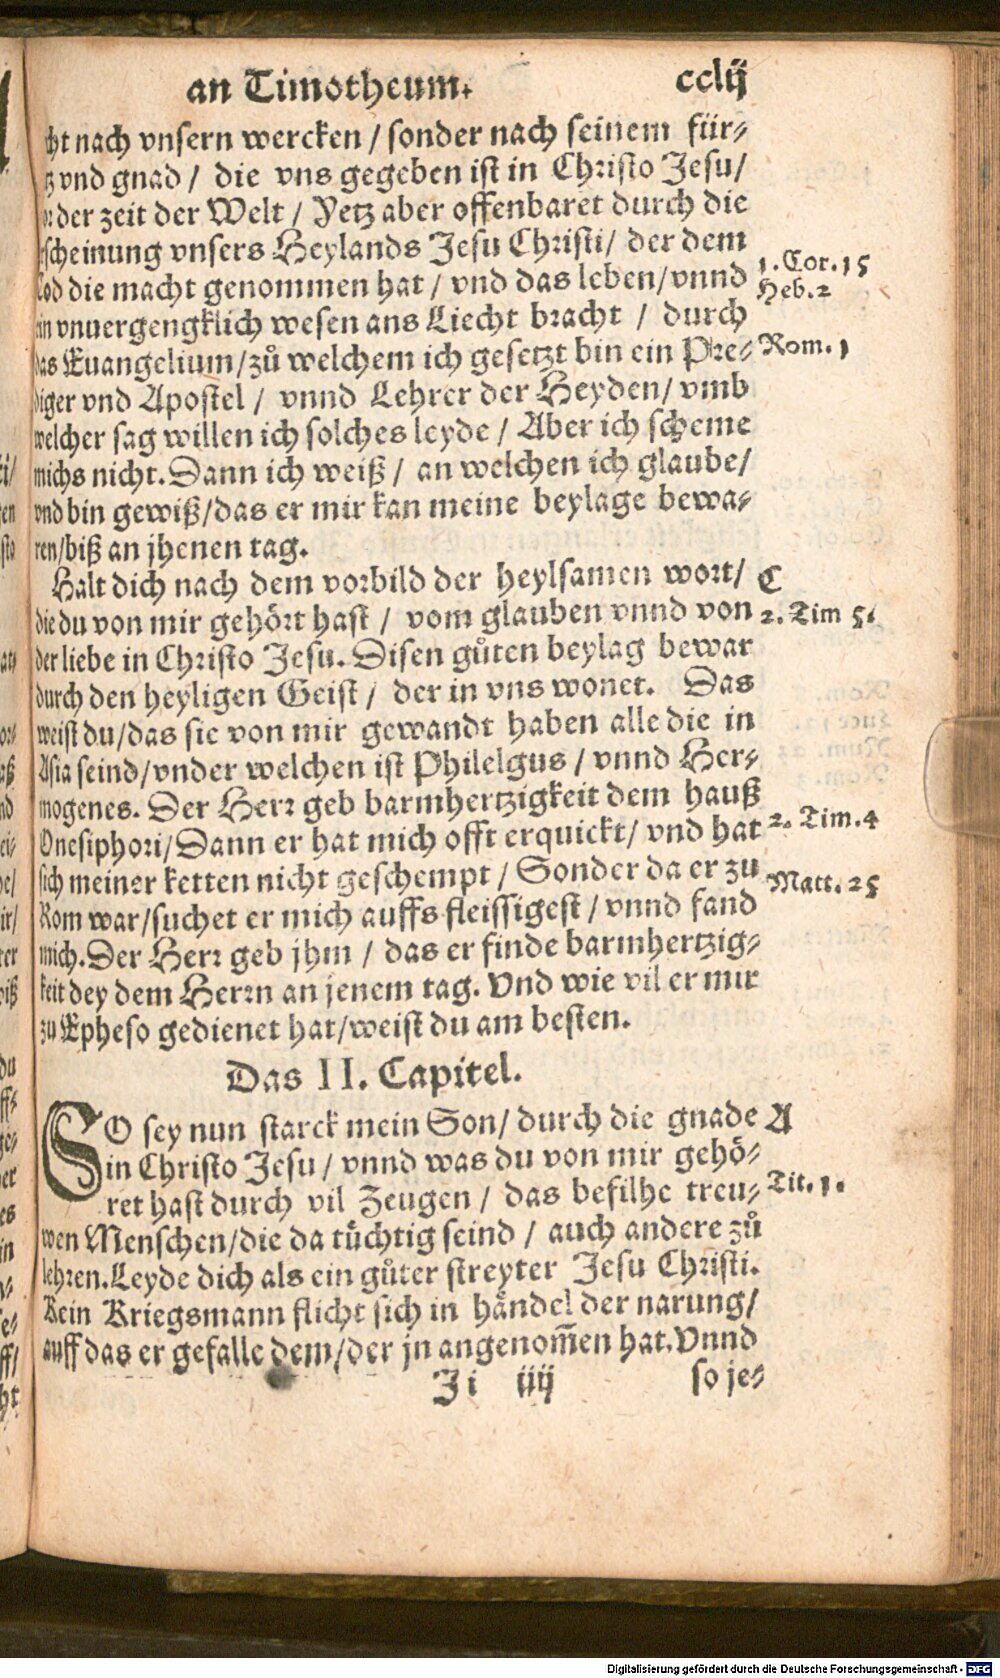 an Timotheum. cclij
cht nach vnsern wercken / sonder nach seinem für⸗
tz vnd gnad / die vns gegeben ist in Christo Jesu/
or der zeit der Welt / Yetz aber offenbaret durch die
scheinung vnsers Heylands Jesu Christi/ der dem
Tod die macht genommen hat / vnd das leben/vnnd
1. Cor. 15
Heb. 2
ein vnuergengklich wesen ans Liecht bracht / durch
das Euangelium/zů welchem ich gesetzt bin ein Pre⸗
Rom. 1
diger vnd Apostel / vnnd Lehrer der Heyden/ vmb
welcher sag willen ich solches leyde / Aber ich scheme
michs nicht. Dann ich weiß / an welchen ich glaube/
vnd bin gewiß/das er mir kan meine beylage bewa⸗
ren/biß an jhenen tag.
Halt dich nach dem vorbild der heylsamen wort/ C
die du von mir gehört hast / vom glauben vnnd von
2. Tim 5.
der liebe in Christo Jesu. Disen gůten beylag bewar
durch den heyligen Geist / der in vns wonet. Das
weist du/das sie von mir gewandt haben alle die in
Asia seind/vnder welchen ist Philelgus / vnnd Her⸗
mogenes. Der Herr geb barmhertzigkeit dem hauß
Onesiphori/Dann er hat mich offt erquickt/ vnd hat
2. Tim. 4
sich meiner ketten nicht geschempt / Sonder da er zu
Matt. 25
Rom war/suchet er mich auffs fleissigest / vnnd fand
mich. Der Herr geb jhm / das er finde barmhertzig⸗
keit dey dem Herrn an jenem tag. Vnd wie vil er mir
zu Epheso gedienet hat/weist du am besten.
Das II. Capitel.
SO sey nun starck mein Son/ durch die gnade A
in Christo Jesu / vnnd was du von mir gehö⸗
ret hast durch vil Zeugen / das befilhe treu⸗
Tit. 1.
wen Menschen/die da tüchtig seind / auch andere zů
lehren. Leyde dich als ein gůter streyter Jesu Christi.
Kein Kriegsmann flicht sich in händel der narung/
auff das er gefalle dem/der jn angenom̄en hat. Vnnd
Ji iiij so je⸗
Digitalisierung gefördert durch die Deutsche Forschungsgemeinschaft - DFG